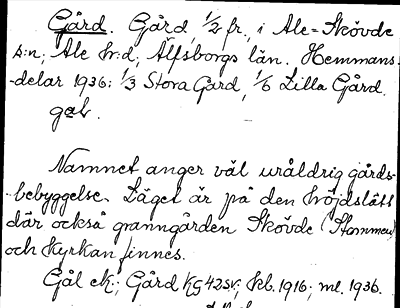 Gård. Gård, 1/2 fr., i Ale-Skövde
s:n, Ale hr:d, Älfsborgs län. Hemmans-
-delar 1936: 1/3 Stora Gård, 1/6 Lilla Gård.
gaL.
Namnet anger väl uråldrig gårds-
-bebyggelse. Läget är på den höjdslätt
där också granngården Skövde (Stommen)
och kyrkan finnes.
Gäl ek.; Gård KG 42sv; hb. 1916; ml. 1936.